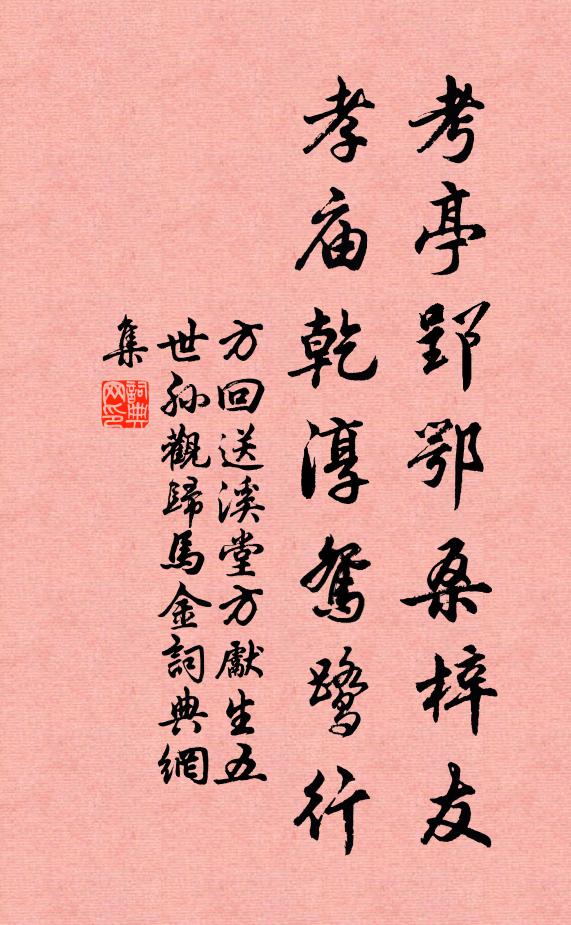 考亭郢鄂桑梓友
孝庙乾淳鴛鷺行
方回送溪堂方獻生五
世孙觀歸馬金詞典網
集
詞典
网印